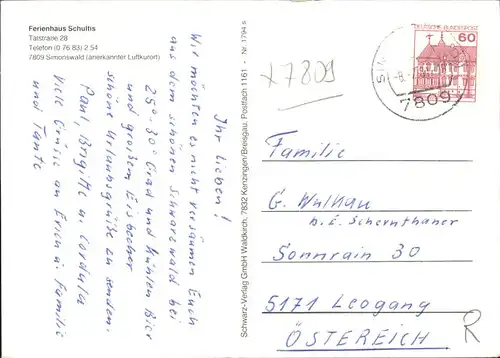 Ferienhaus Schultis
Talstraße 28
Telefon (0 76 83) 2 54
7809 Simonswald (anerkannter Luftkurort)
Ihr Lieben!
Wir möchten es nicht versäumen Euch
aus dem schönen Schwarzwald bei
25°-30° Grad und kühlen Bier
und großem Eisbecher
schöne Urlaubsgrüße zu senden.
Paul, Brigitte u. Cordula
Viele Grüsse an Erich u. Familie
und Tante
Schwarz-Verlag GmbH Waldkirch, 7832 Kenzingen/Breisgau, Postfach 1161 - Nr. 1794 s
7809
DEUTSCHE BUNDESPOST
60
7809
Familie
G. Wulkau
b. E. Schernthaner
Sonnrain 30
5171 Leogang
ÖSTERREICH
R